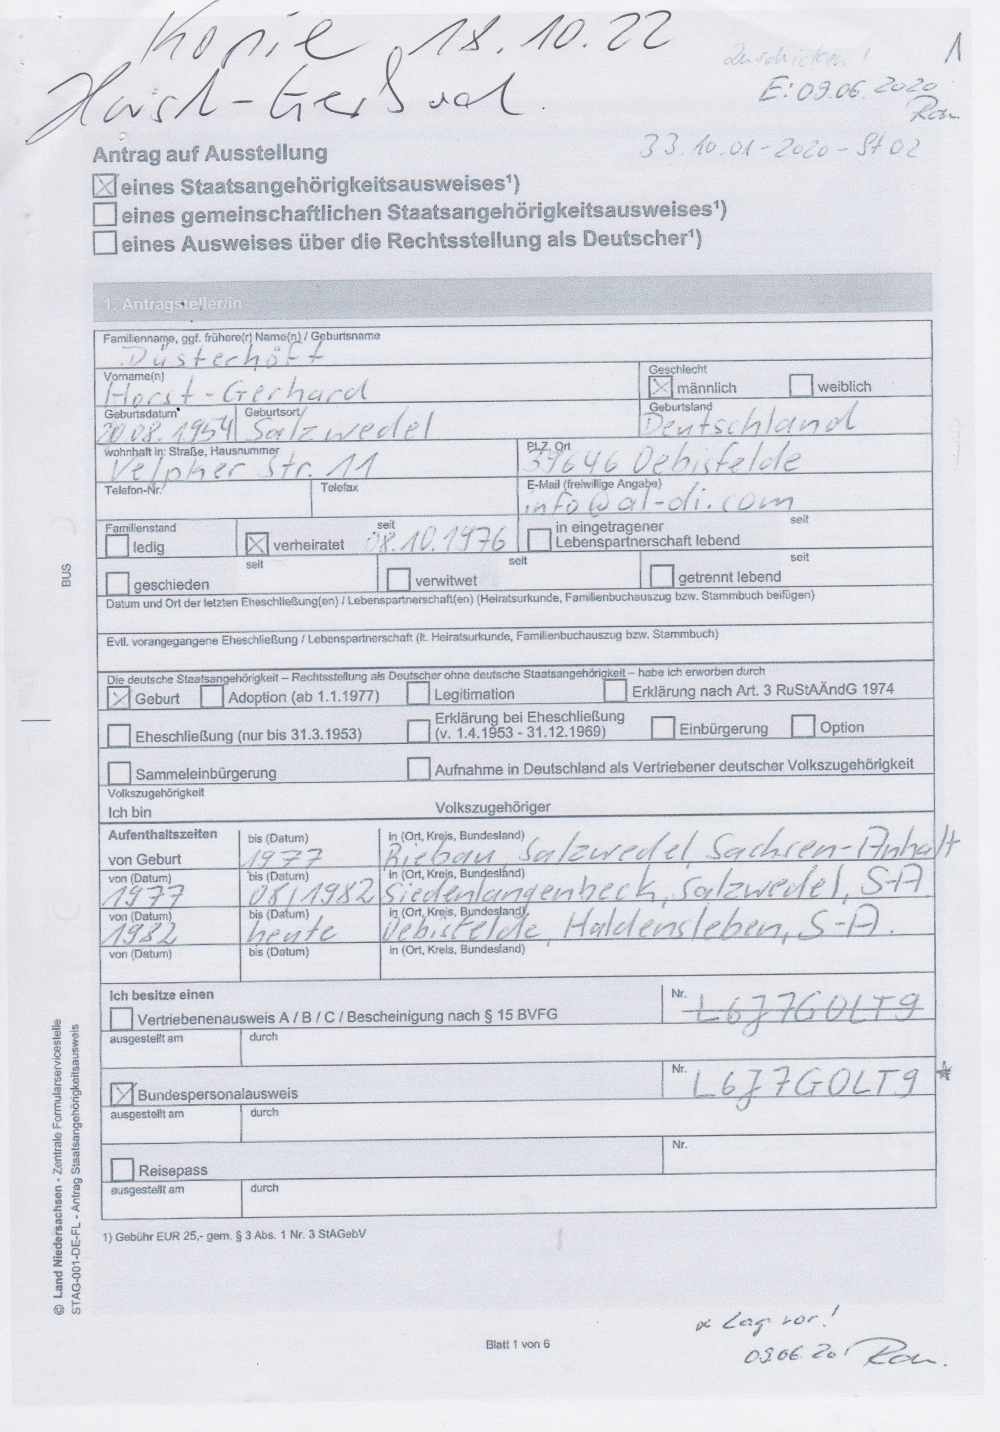 Kopie 18.10.22
Horst-Gerhard
zuschicken! 1
E: 09.06.2020
Ran.
33.10.01-2020-St 02
Antrag auf Ausstellung
☒ eines Staatsangehörigkeitsausweises¹)
☐ eines gemeinschaftlichen Staatsangehörigkeitsausweises¹)
☐ eines Ausweises über die Rechtsstellung als Deutscher¹)
1. Antragsteller/in
Familienname, ggf. frühere(r) Name(n) / Geburtsname
Düsterhöft
Vorname(n) Geschlecht
Horst-Gerhard ☒ männlich ☐ weiblich
Geburtsdatum Geburtsort Geburtsland
20.08.1954 Salzwedel Deutschland
wohnhaft in: Straße, Hausnummer PLZ, Ort
Velpker Str. 11 39646 Oebisfelde
Telefon-Nr. Telefax E-Mail (freiwillige Angabe)
info@al-di.com
Familienstand seit in eingetragener seit
☐ ledig ☒ verheiratet 08.10.1976 ☐ Lebenspartnerschaft lebend
seit seit seit
☐ geschieden ☐ verwitwet ☐ getrennt lebend
Datum und Ort der letzten Eheschließung(en) / Lebenspartnerschaft(en) (Heiratsurkunde, Familienbuchauszug bzw. Stammbuch beifügen)
Evtl. vorangegangene Eheschließung / Lebenspartnerschaft (lt. Heiratsurkunde, Familienbuchauszug bzw. Stammbuch)
Die deutsche Staatsangehörigkeit – Rechtsstellung als Deutscher ohne deutsche Staatsangehörigkeit – habe ich erworben durch
☒ Geburt ☐ Adoption (ab 1.1.1977) ☐ Legitimation ☐ Erklärung nach Art. 3 RuStAÄndG 1974
☐ Eheschließung (nur bis 31.3.1953) ☐ Erklärung bei Eheschließung (v. 1.4.1953 - 31.12.1969) ☐ Einbürgerung ☐ Option
☐ Sammeleinbürgerung ☐ Aufnahme in Deutschland als Vertriebener deutscher Volkszugehörigkeit
Volkszugehörigkeit
Ich bin Volkszugehöriger
Aufenthaltszeiten bis (Datum) in (Ort, Kreis, Bundesland)
von Geburt 1977 Riebau, Salzwedel, Sachsen-Anhalt
von (Datum) bis (Datum) in (Ort, Kreis, Bundesland)
1977 08/1982 Siedenlangenbeck, Salzwedel, S-A
von (Datum) bis (Datum) in (Ort, Kreis, Bundesland)
1982 heute Oebisfelde, Haldensleben, S-A.
von (Datum) bis (Datum) in (Ort, Kreis, Bundesland)
Ich besitze einen Nr.
☐ Vertriebenenausweis A / B / C / Bescheinigung nach § 15 BVFG L6J7G0LT9
ausgestellt am durch
Nr.
☒ Bundespersonalausweis L6J7G0LT9 *
ausgestellt am durch
Nr.
☐ Reisepass
ausgestellt am durch
1) Gebühr EUR 25,- gem. § 3 Abs. 1 Nr. 3 StAGebV
* Lag vor!
Blatt 1 von 6
09.06.20 Ran.
BUS
© Land Niedersachsen - Zentrale Formularservicestelle
STAG-001-DE-FL - Antrag Staatsangehörigkeitsausweis